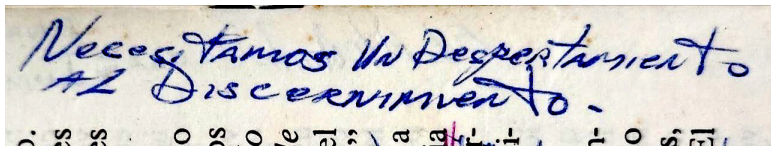 Necesitamos un Despertamiento
al Discernimiento.